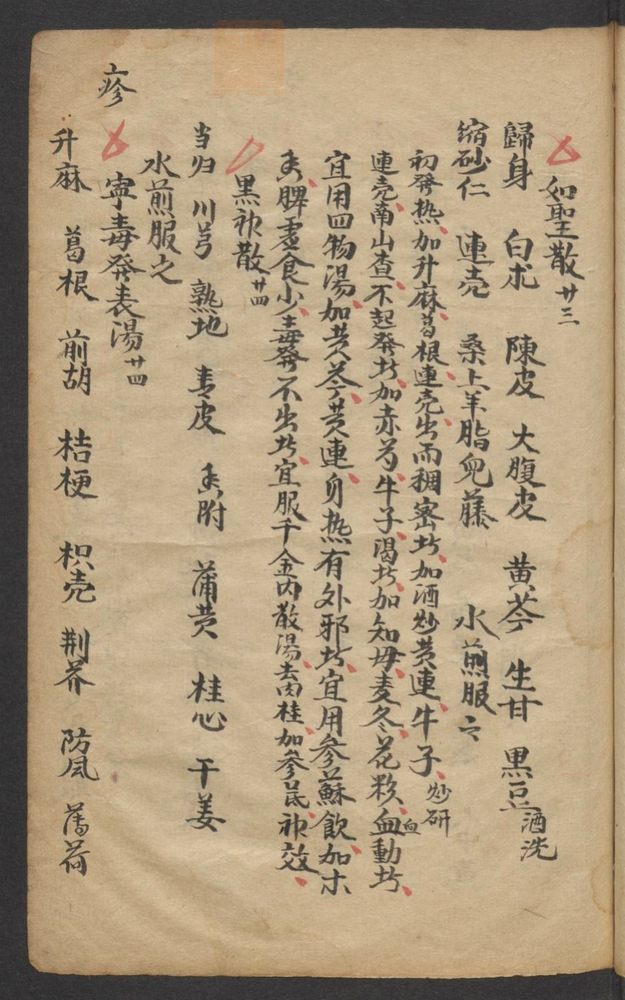 如聖散 廿三
歸身 白朮 陳皮 大腹皮 黄芩 生甘 黑豆 酒洗
缩砂仁 連壳 桑上羊脂兒藤 水煎服之
初發热加升麻葛根連壳出而稠密者加酒炒黄連牛子炒研
連壳南山查不起發者加赤芍牛子渴者加知母麦冬花粉血動者
宜用四物湯加黄芩黄連身热有外邪者宜用參蘇飲加木
香脾虚食少毒發不出者宜服千金内散湯去肉桂加參芪神效
黑神散 廿四
当归 川芎 熟地 青皮 香附 蒲黄 桂心 干姜
水煎服之
寧毒發表湯 廿四
升麻 葛根 前胡 桔梗 枳壳 荆芥 防風 薄荷
疹